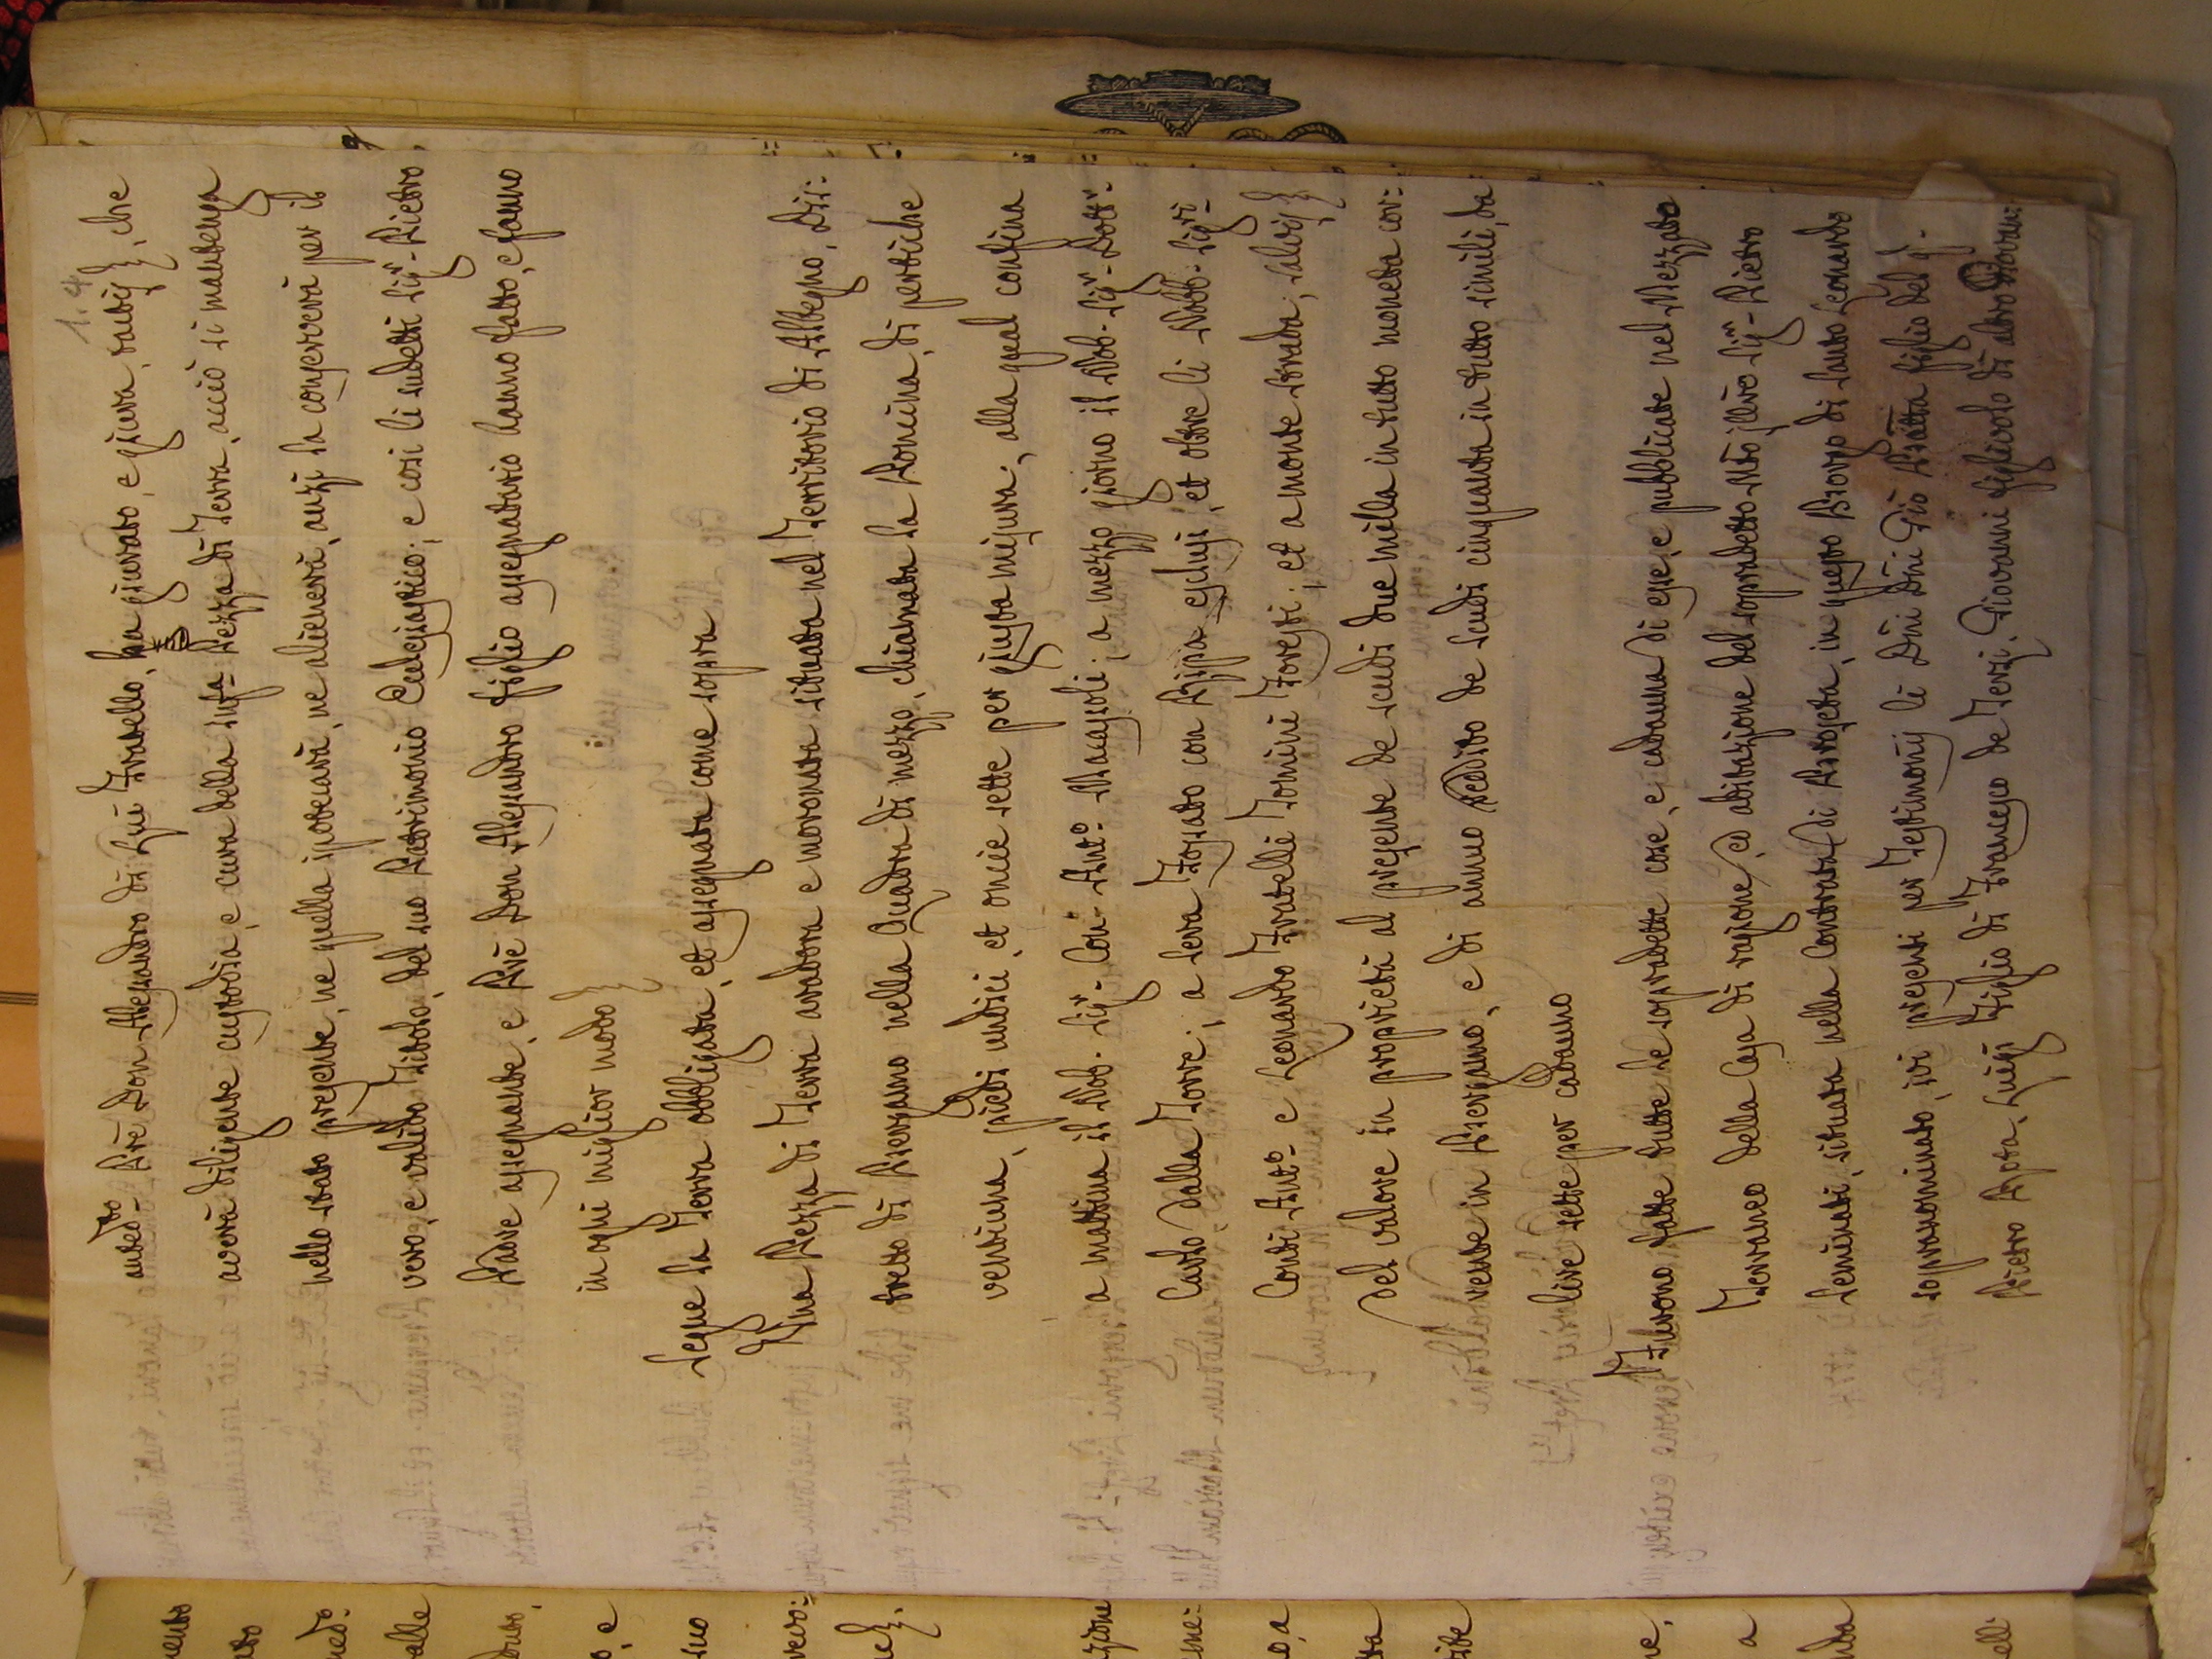 1. 4
anted.to Pre Don Alessandro di Lui Fratello, ha giurato, e giura, tactis &, che
averà diligente custodia, e cura della sud.a Pezza di Terra, acciò si mantenga
nello stato presente, ne quella ipotecarà, ne alienerà, anzi la conserverà per il
vero, e valido Titolo, del suo Patrimonio Eccle­siastico; e così li sudetti Sig.r Pietro,
Padre assegnante, e Pre Don Alessandro figlio assegnatario hanno fatto, e fanno
in ogni miglior modo &
Segue la Terra obbligata, et assegnata come sopra
Una Pezza di Terra aradora e moronata situata nel Territorio di Albegno, Dis:
tretto di Bergamo nella Quadra di mezzo, chiamata la Romina, di pertiche
ventiuna, piedi undici, et oncie sette per giusta misura, alla qual confina
a mattina il Nob. Sig.r Con. Ant.o Macassoli, a mezzo giorno il Nob. Sig.r Dott.r
Carlo dalla Torre; a sera Fossato con Rippa esclusi, et oltre li Nobb. Sig.ri
Conti Ant.o e Leonardo Fratelli Tomini Foresti, et a monte strada, salvis &
Del valore in proprietà al presente de scudi due milla in tutto moneta cor:
rente in Bergamo, e di annuo Reddito de scudi cinquanta in tutto simili, da
lire sette per cadauno
Furono fatte tutte le sopradette cose, e cadauna di esse, e pubblicate nel Mezzado
Terraneo della Casa di ragione, ed abitazione del sopradetto Mto Illre Sig.r Pietro
Seminati, situata nella Contrada di Broseta, in questo Borgo di Santo Leonardo
sopranominato, ivi presenti per Testimonj li Dni Dni Gio Batta figlio del q.
Pietro Rota, Luigi Figlio di Francesco de Terzi, Giovanni figliuolo di altro Giovan: